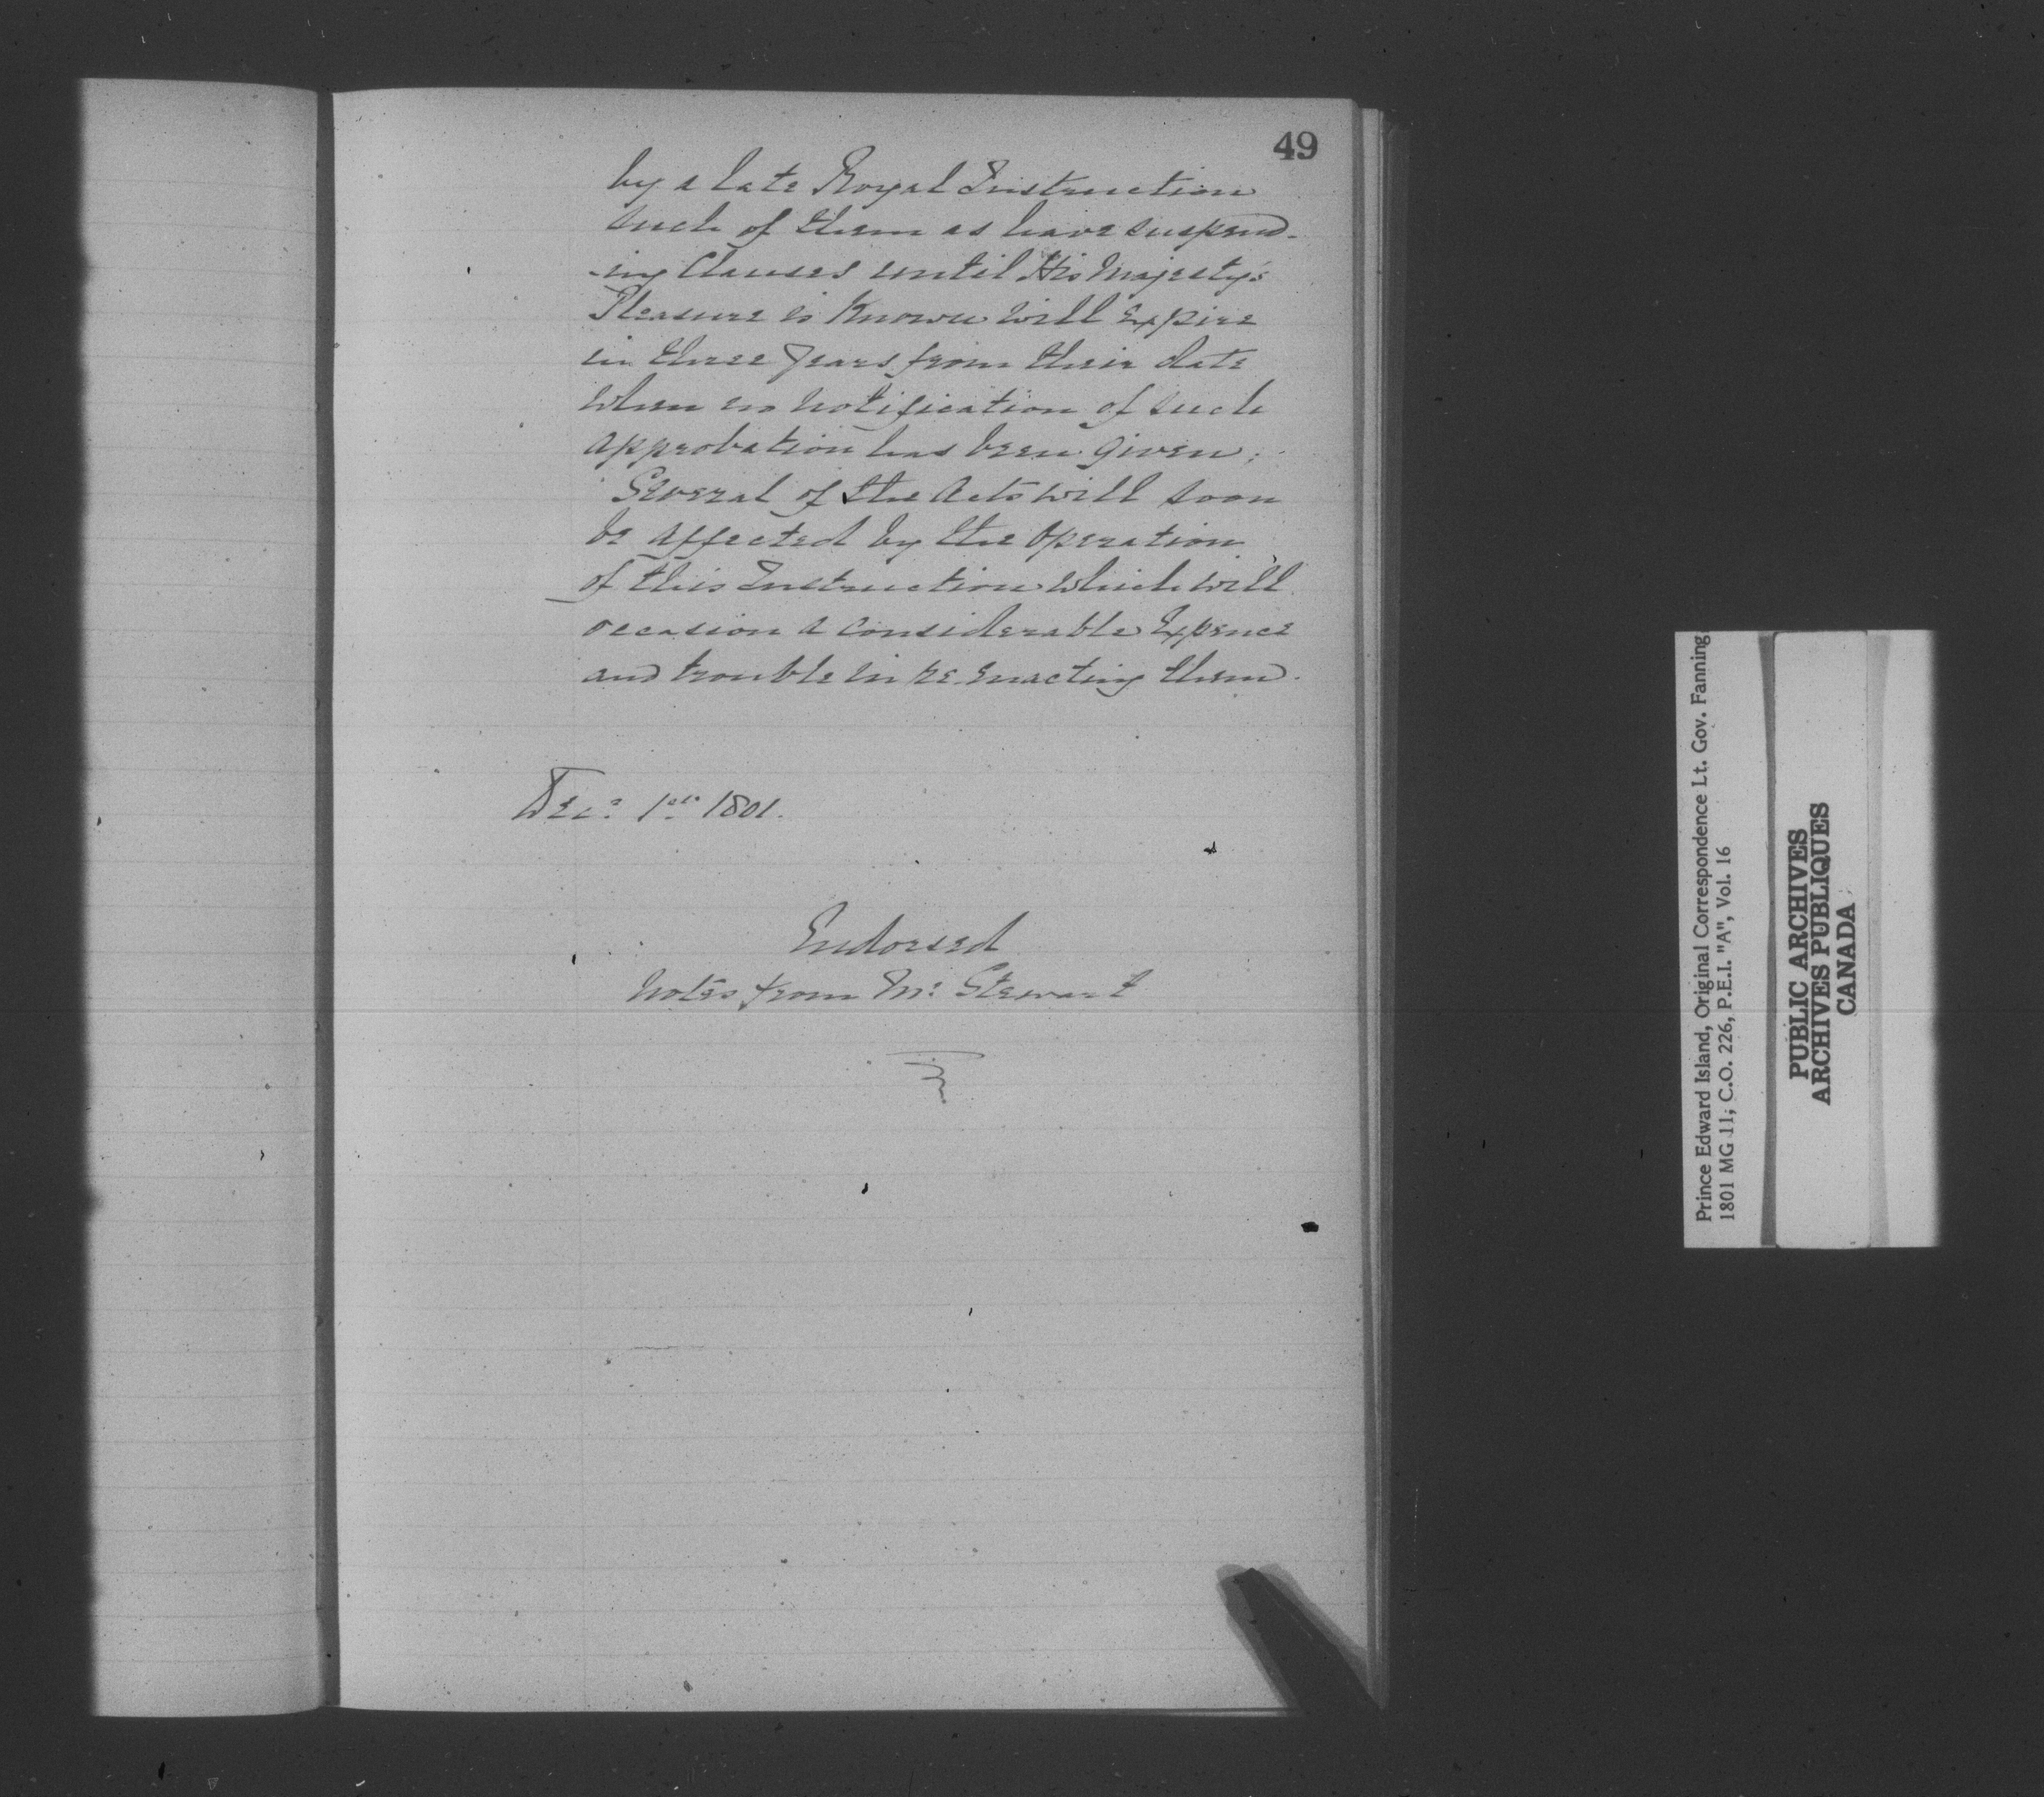 49
by a late Royal Instruction
such of them as have suspend-
-ing Clauses until His Majesty's
Pleasure is Known will Expire
in three Years from their date
when no notification of such
approbation has been given;
Several of the Acts will soon
be affected by the Operation
of this Instruction which will
occasion a Considerable Expence
and trouble in re-enacting them.
Dec. 1st 1801.
Endorsed
Notes from Mr Stewart
Prince Edward Island, Original Correspondence Lt. Gov. Fanning
1801 MG 11, C.O. 226, P.E.I. "A", Vol. 16
PUBLIC ARCHIVES
ARCHIVES PUBLIQUES
CANADA